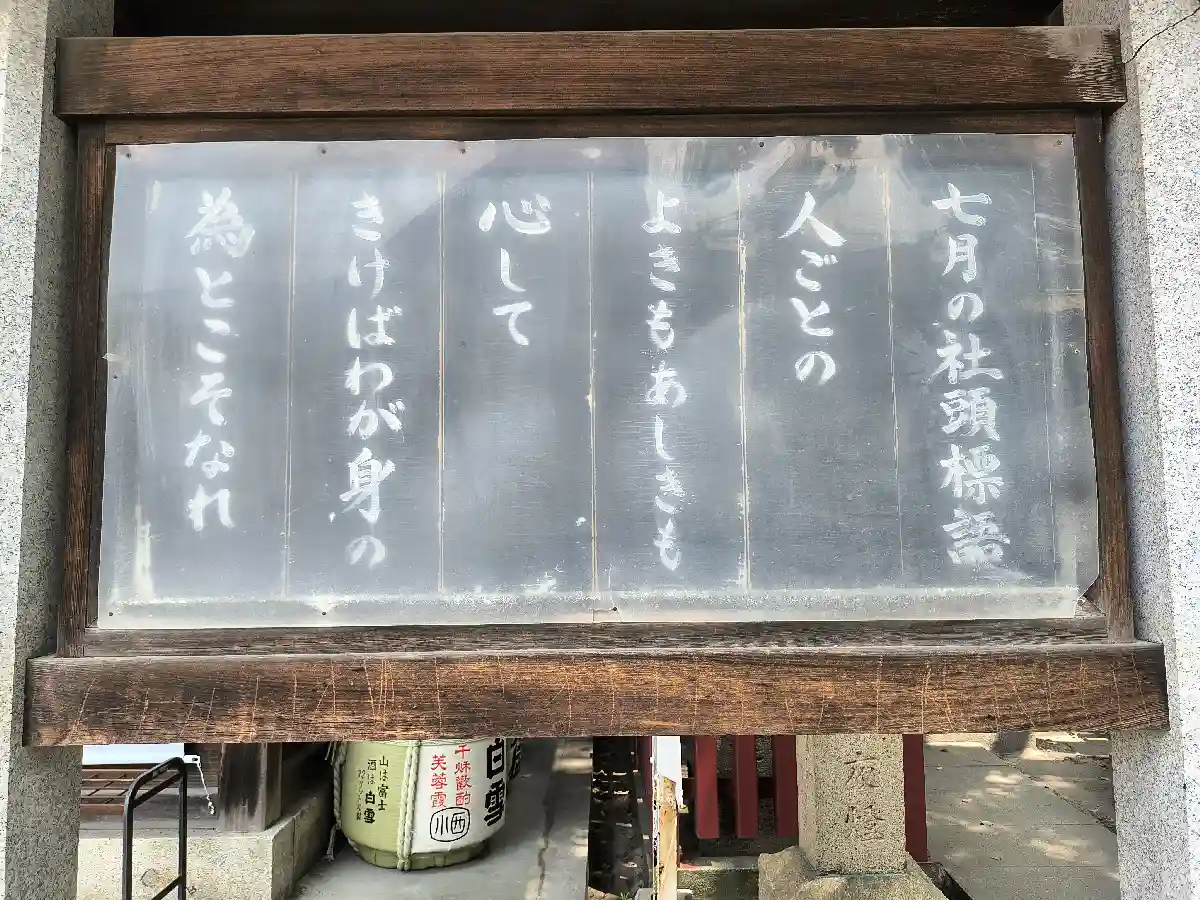 七月の社頭標語
人ごとの
よきもあしきも
心して
きけばわが身の
為とこそなれ
白雪
千秋歓酌
芙蓉霞
山は富士
酒は白雪